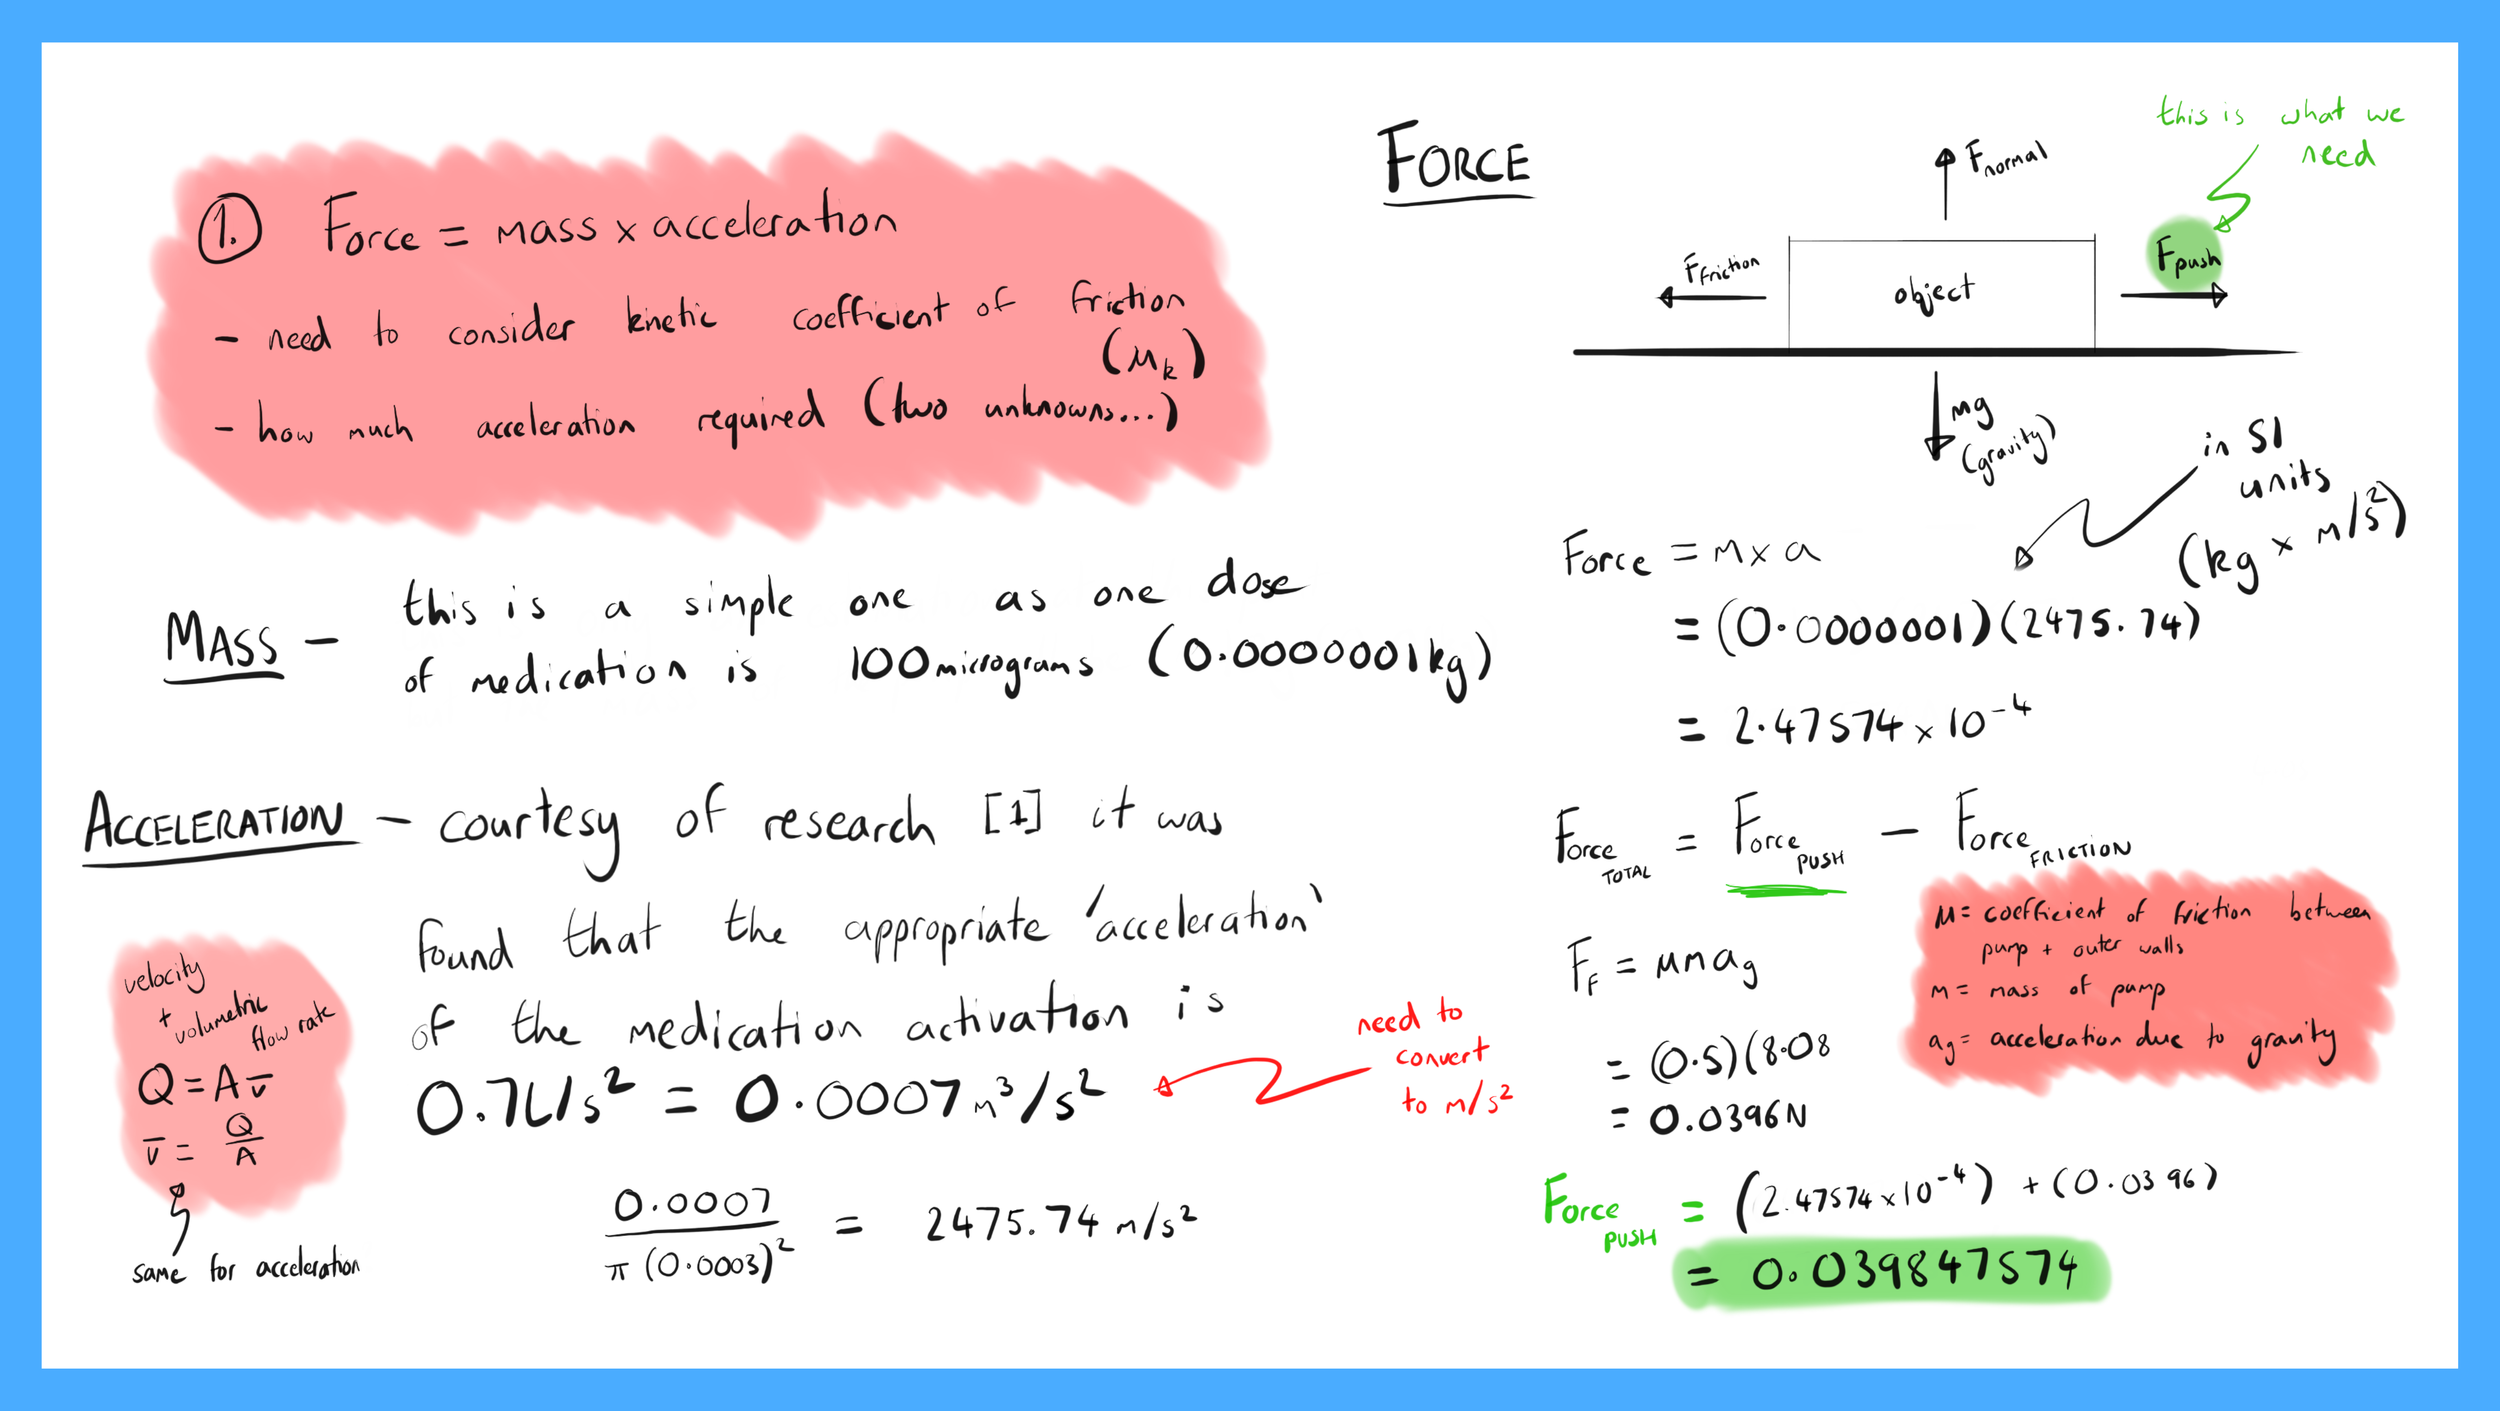 1. Force = mass x acceleration
- need to consider kinetic coefficient of friction
(μk)
- how much acceleration required (two unknowns...)
MASS - this is a simple one as one dose
of medication is 100micrograms (0.0000001kg)
ACCELERATION - courtesy of research [1] it was
found that the appropriate 'acceleration'
of the medication activation is
0.7L/s² = 0.0007m³/s²
need to
convert
to m/s²
0.0007 / π(0.0003)² = 2475.74 m/s²
velocity
+ volumetric
flow rate
Q = Av̄
v̄ = Q/A
same for acceleration
FORCE
this is what we
need
Fnormal
Ffriction
object
Fpush
mg
(gravity)
in SI
units
(kg x m/s²)
Force = m x a
= (0.0000001)(2475.74)
= 2.47574 x 10⁻⁴
Force TOTAL = Force PUSH - Force FRICTION
μ = coefficient of friction between
pump + outer walls
m = mass of pump
ag = acceleration due to gravity
FF = μmag
= (0.5)(8.08
= 0.0396N
Force PUSH = (2.47574x10⁻⁴) + (0.0396)
= 0.039847574